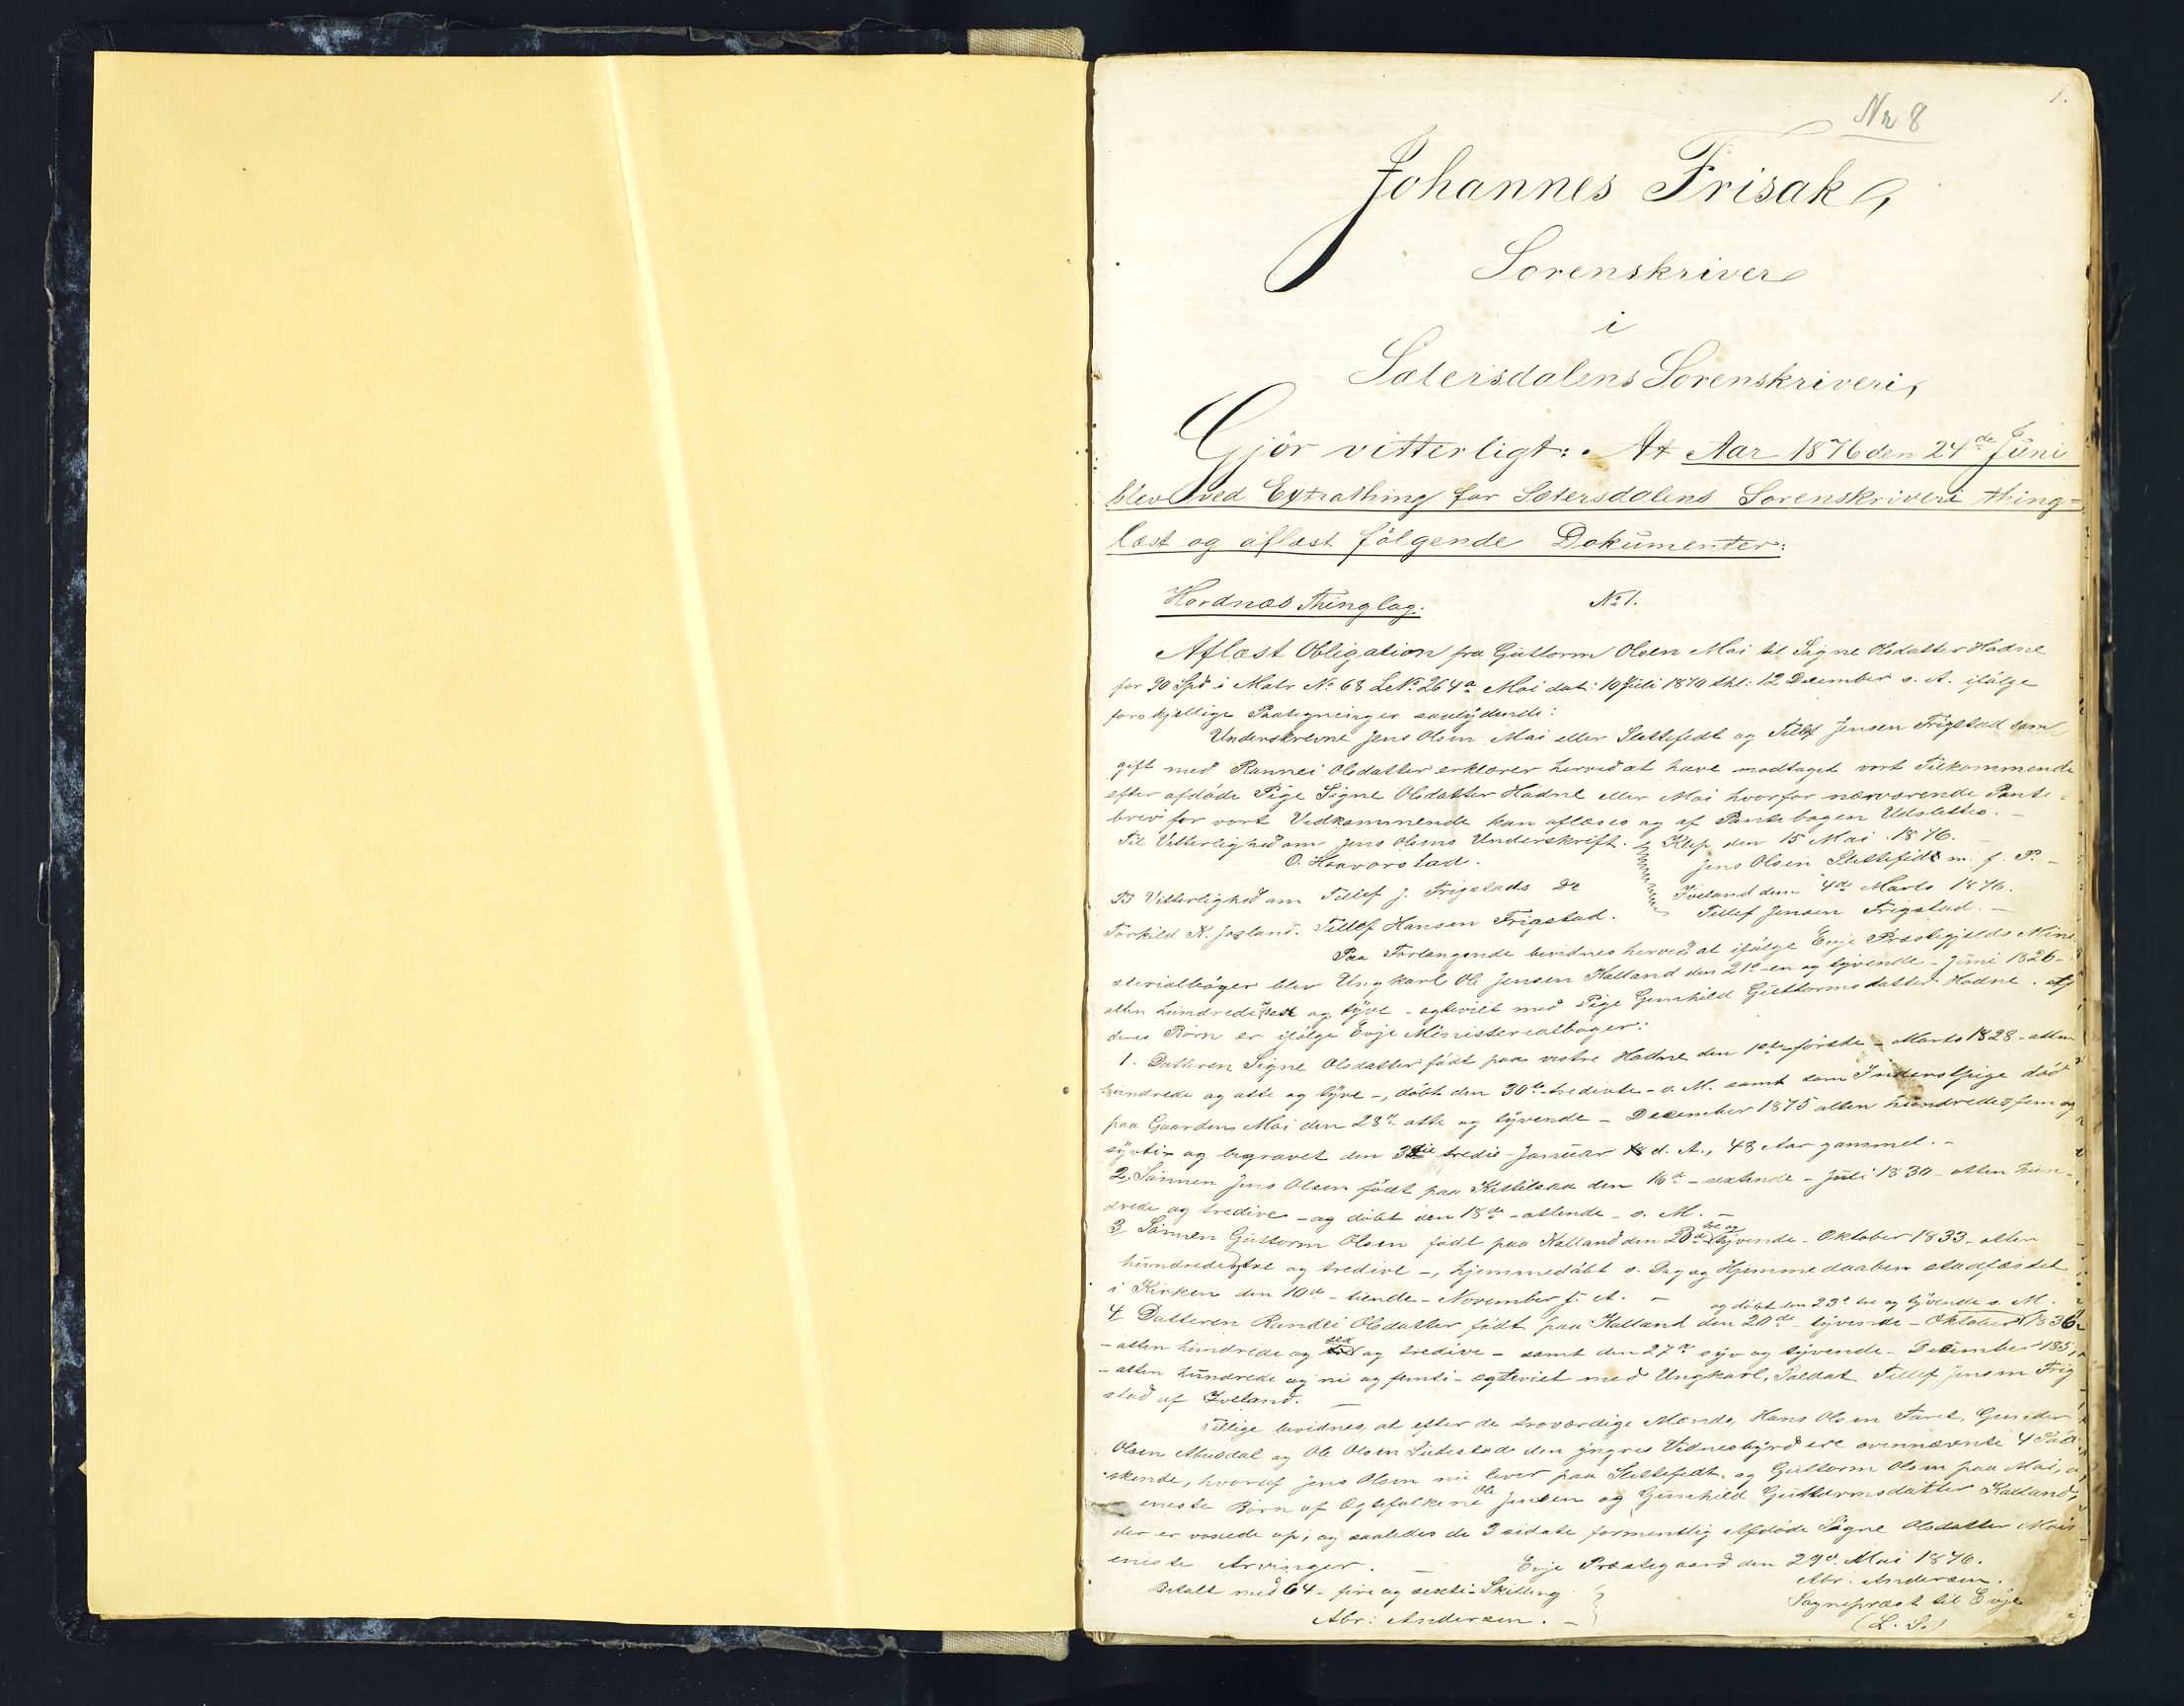 1.
Nr 8
Johannes Frisak,
Sorenskriver
i
Sætersdalens Sorenskriveri,
Gjör vitterligt: At Aar 1876 den 24de Juni
blev ved Extrathing for Sætersdalens Sorenskriveri thing-
læst og aflæst fölgende Dokumenter:
Hordnæs Thinglag. No 1.
Aflæst Obligation fra Guttorm Olsen Moi til Signe Olsdatter Hodne
for 90 Spd i Matr No 68 LNo 264a Moi dat: 10 Juli 1870 thl: 12 December s. A. ifölge
forskjellige Paategninger saalydende:
Underskrevne Jens Olsen Moi eller Slettefedt og Tellef Jensen Frigstad som
gift med Rannei Olsdatter erklærer herved at have modtaget vort Tilkommende
efter afdöde Pige Signe Olsdatter Hodne eller Moi hvorfor nærværende Pante-
brev for vort Vedkommende kan aflæses og af Pantebogen Udslettes. -
Til Vitterlighed om Jens Olsens Underskrift. Klep den 15 Mai 1876.
O. Haavorstad. Jens Olsen Slettefedt m. f. P. -
Til Vitterlighed om Tellef J. Frigstads Do Iveland den 4de Marts 1876.
Torkild K. Josland. Tellef Hansen Frigstad. Tellef Jensen Frigstad. -
Paa Forlangende bevidnes herved at ifölge Evje Præstegjelds Mini-
sterialböger blev Ungkarl Ole Jensen Kalland den 21de - en og tyvende - Juni 1826 -
atten hundrede sex og tyve - egteviet med Pige Gunhild Guttormsdatter Hodne. Af
deres Börn er ifölge Evje Ministerialböger:
1. Datteren Signe Olsdatter födt paa vestre Hodne den 1ste - förste - Marts 1828 - atten
hundrede og otte og tyve -, döbt den 30te - tredivte - s. M. samt som Inderstpige död
paa Gaarden Moi den 28de - otte og tyvende - December 1875 atten hundrede fem og
sytti - og begravet den 3die tredie - Januar d. A., 48 Aar gammel. -
2, Sönnen Jens Olsen födt paa Kittilsaa den 16de - sextende - Juli 1830 - atten hun-
drede og tredive - og döbt den 18de - attende - s. M. -
3 Sönnen Guttorm Olsen födt paa Kalland den 23de tre og tyvende - Oktober 1833 - atten
hundrede og tre og tredive -, hjemmedöbt s. Dag og Hjemmedaaben stadfæstet
i Kirken den 10de - tiende - November s. A. -
og döbt den 23de tre og tyvende s. M.
4 Datteren Randei Olsdatter födt paa Kalland den 20de - tyvende - Oktober 1836
- atten hundrede og sex og tredive - samt den 27de syv og tyvende - December 185
- atten hundrede og ni og femti - egteviet med Ungkarl, Soldat Tellef Jensen Frig
stad af Iveland. -
Tillige bevidnes, at efter de troværdige Mænds, Hans Olsen Faret, Gunder
Olsen Abusdal og Ole Olsen den yngres Vidnesbyrd ere ovennævnte 4 Söd-
skende, hvoraf Jens Olsen nu lever paa Slettefedt, og Guttorm Olsen paa Moi,
eneste Börn af Egtefolkene Ole Jensen og Gunhild Guttormsdatter Kalland,
der er voxede op, og saaledes de 3 sidste formentlig Afdöde Signe Olsdatter Mois
eneste Arvinger. - Evje Præstegaard den 29de Mai 1876.
Betalt med 64 - fire og sexti - Skilling Abr. Andersen.
Abr: Andersen. - Sognepræst til Evje
(L. S.)